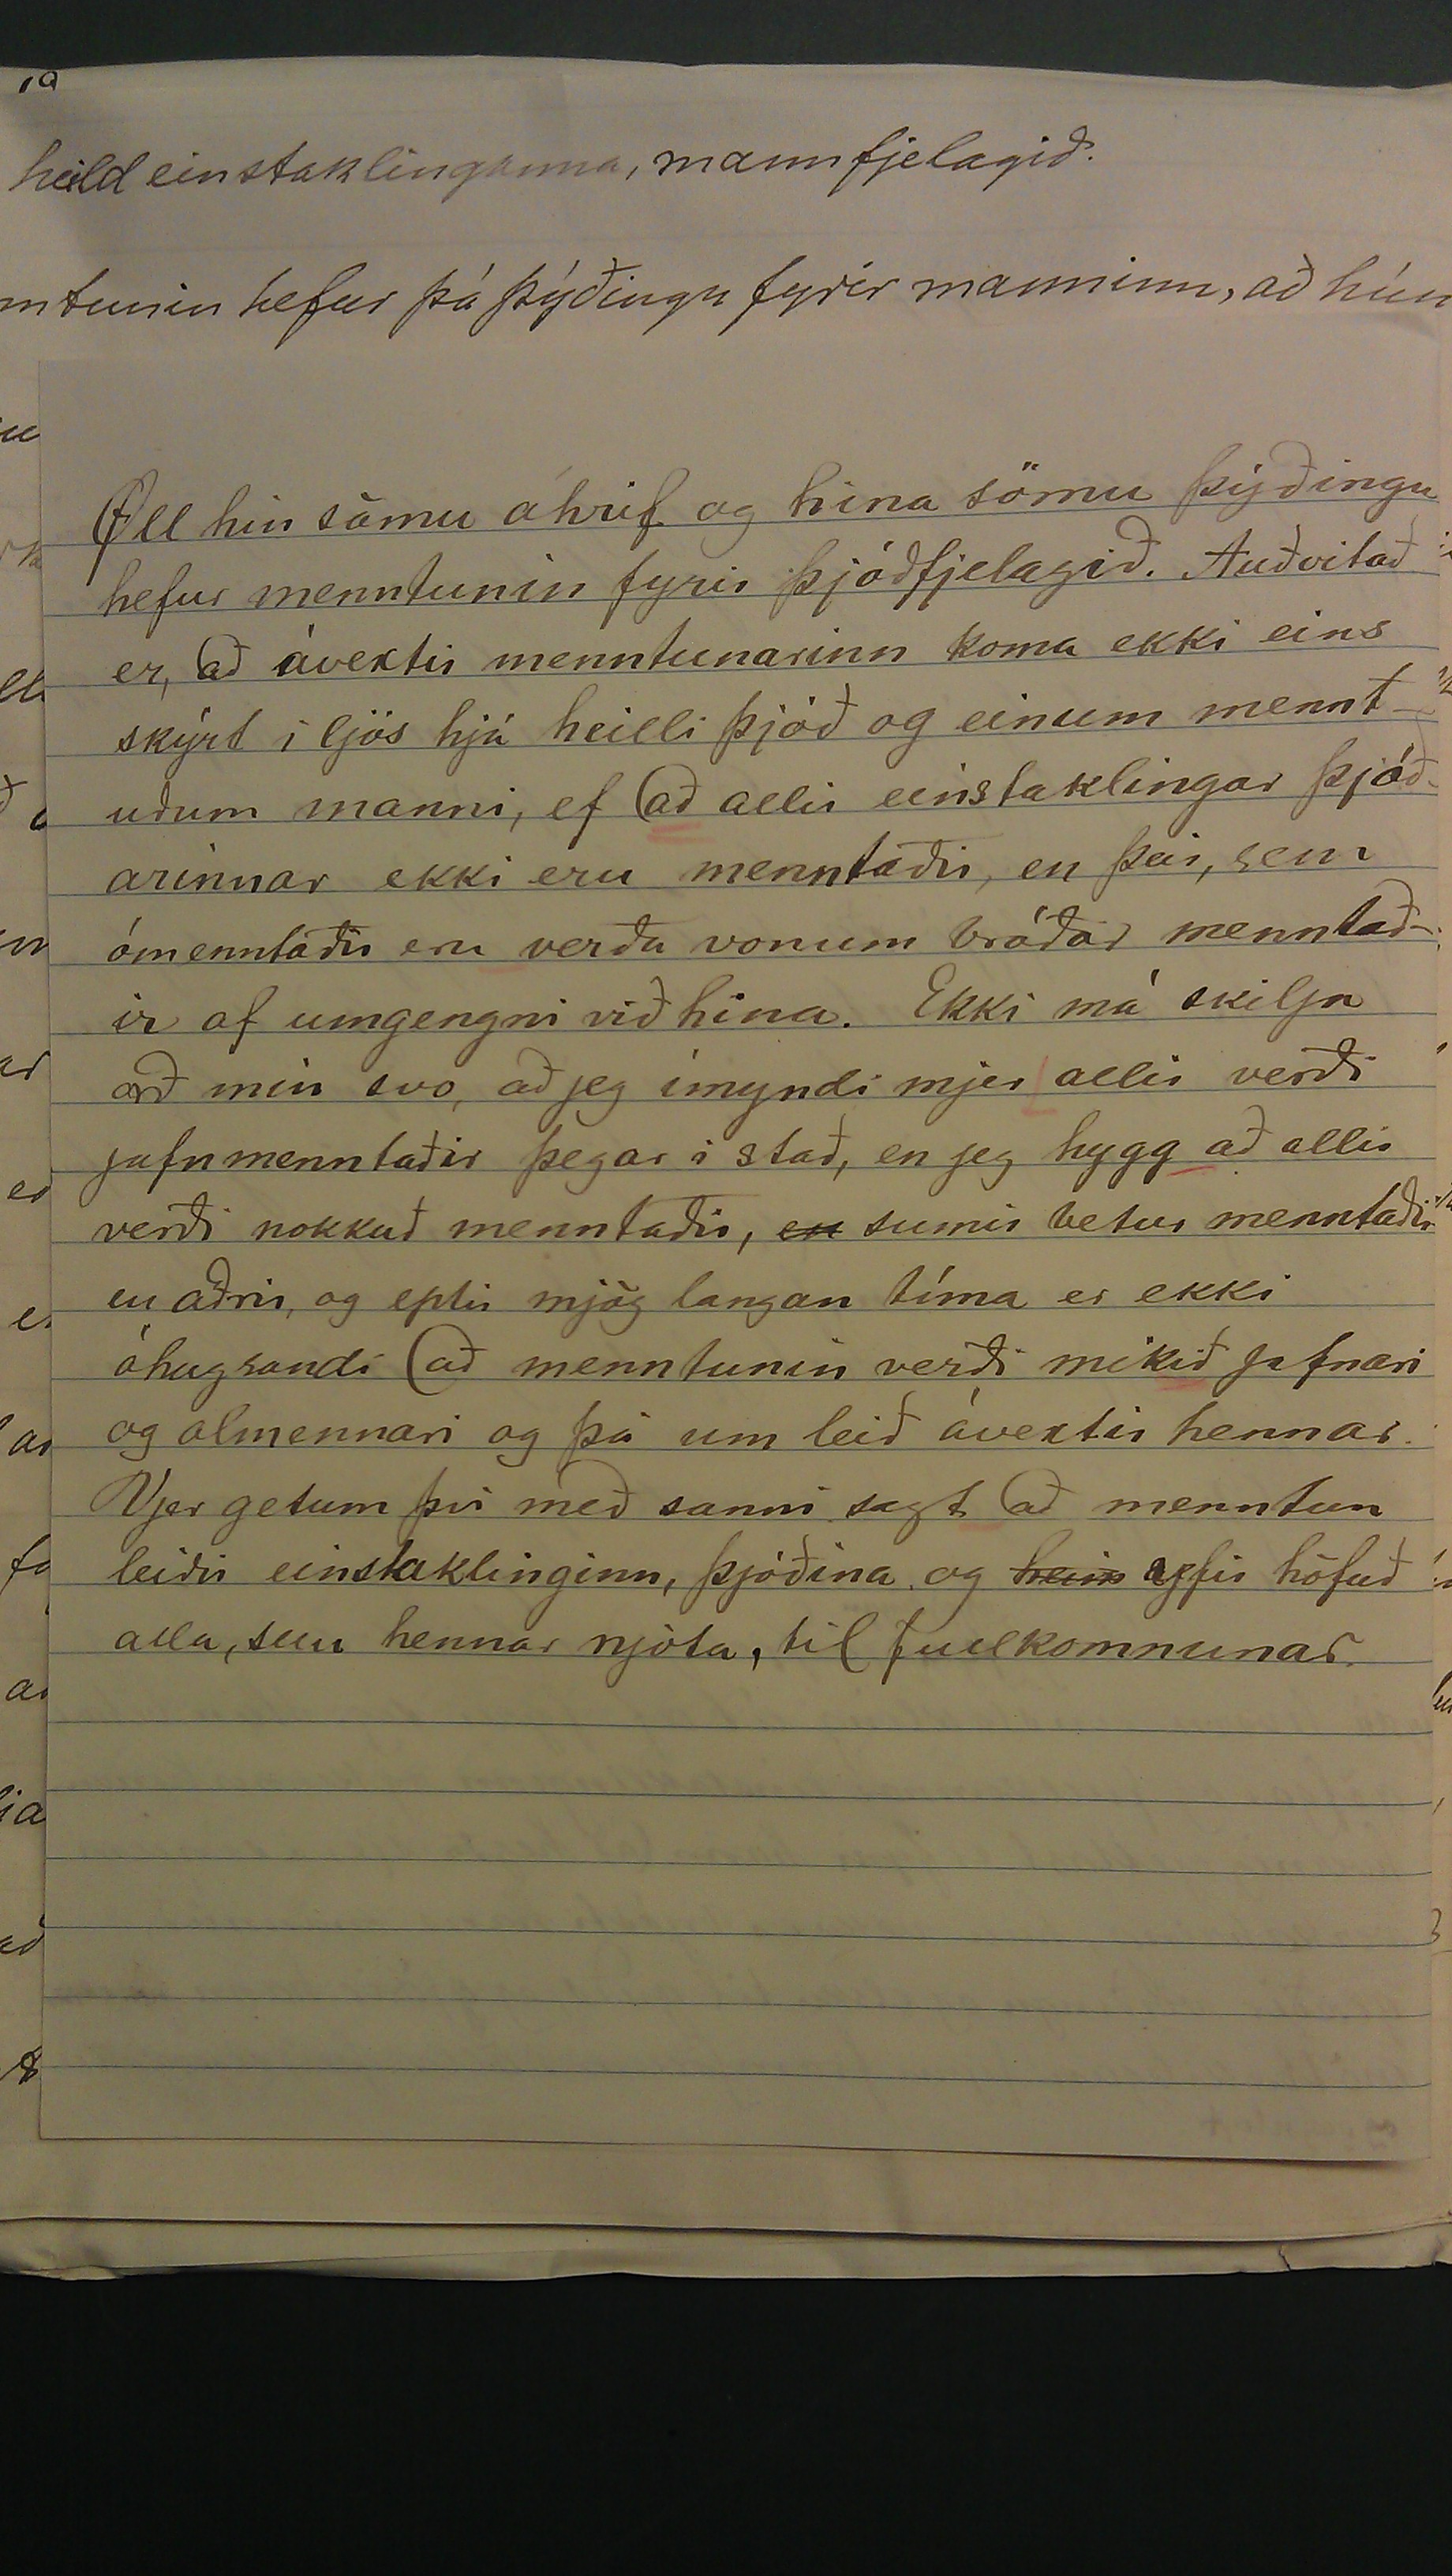 heild einstaklinganna, mannfjelagið.
ntunin hefur þá þýðingu fyrir manninn, að hún
Öll hin sömu áhrif og hina sömu þýðingu
hefur menntunin fyrir þjóðfjelagið. Auðvitað
er, að ávextir menntunarinn koma ekki eins
skýrt í ljós hjá heilli þjóð og einum mennt-
uðum manni, ef að allir einstaklingar þjóð-
arinnar ekki eru menntaðir, en þeir, sem
ómenntaðir eru verða vonum bráðar menntað-
ir af umgengni við hina. Ekki má skilja
orð mín svo, að jeg ímyndi mjer allir verði
jafnmenntaðir þegar í stað, en jeg hygg að allir
verði nokkuð menntaðir, en sumir betur menntaðir
en aðrir, og eptir mjög langan tíma er ekki
óhugsandi að menntunin verði mikið jafnari
og almennari og þá um leið ávextir hennar.
Vjer getum því með sanni sagt að menntun
leiðir einstaklinginn, þjóðina og yfir höfuð
alla, sem hennar njóta, til fullkomnunar.